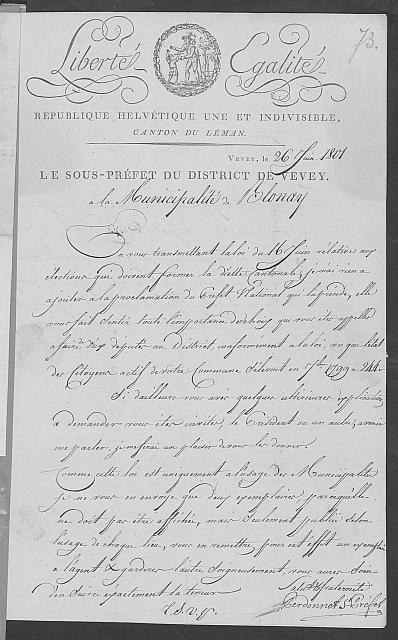 73.
Liberté Egalité
REPUBLIQUE HELVÉTIQUE UNE ET INDIVISIBLE,
CANTON DU LÉMAN.
VEVEY, le 26 Juin 1801
LE SOUS-PRÉFET DU DISTRICT DE VEVEY.
a la Municipalité de Blonay
En vous transmettant la loi du 16 Juin relative aux
elections qui doivent former la diette Cantonale, je n'ai rien a
ajouter a la proclamation du Prefet National qui la précede, elle
vous fait sentir toute l'importance des choix que vous etes appellés
a faire deux députés au District, conformement a la loi, vu que l'état
des Citoyens actif de votre Commune s'élevoit en 7bre 1799 a 244.
Si d'ailleurs vous avez quelques ultérieures explications
a demander vous étes invités, le Président ou un autre, a venir
me parler, je me ferai un plaisir de vous les donner.
Comme cette loi est uniquement a l'usage des Municipalités
je ne vous en envoye que deux exemplaires, parcequ'elle
ne doit pas être affichée, mais seulement publiée selon
l'usage de chaque lieu, vous en remettrez pour cet effet un exemplaire
a l'agent & garderez l'autre soigneusement, vous aurez soin
d'en suivre exactement la teneur
Salut & fraternité
Perdonnet S. Préfet
T.S.V.P.